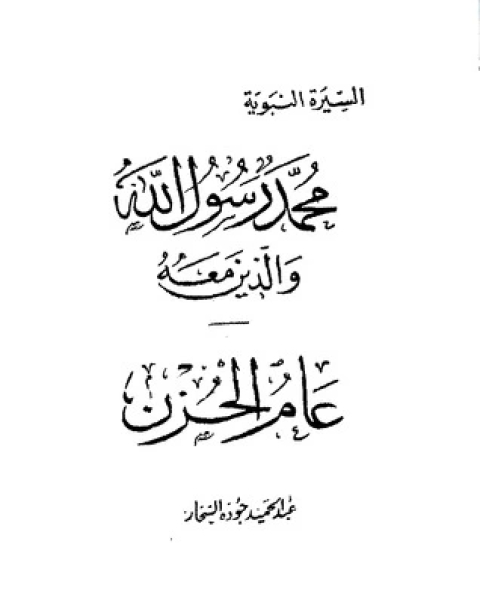 السِّيرَة النَّبَوِيَّة
مُحَمَّدٌ رَسُولُ اللَّهِ
وَالَّذِينَ مَعَهُ
عَامُ الحُزْنِ
عبد الحميد جوده السحار